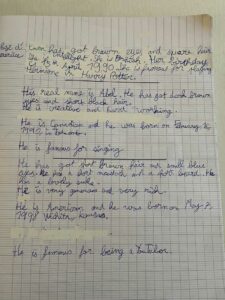 has got brown eyes and square hair
is British. Her birthday
is April 1990. She is famous for playing
Hermione in Harry Potter.
His real name is Abel. He has got dark brown
eyes and short black hair.
He is creative and hard working.
He is Canadian and he was born on February 16
1990 in
He is famous for singing
He has got short brown hair and small blue
eyes. He has a short and a short beard. He
has a lovely smile.
He is very generous and very rich.
He is American and he was born on May 7,
1998 Wichita Kansas.
He is famous for being a